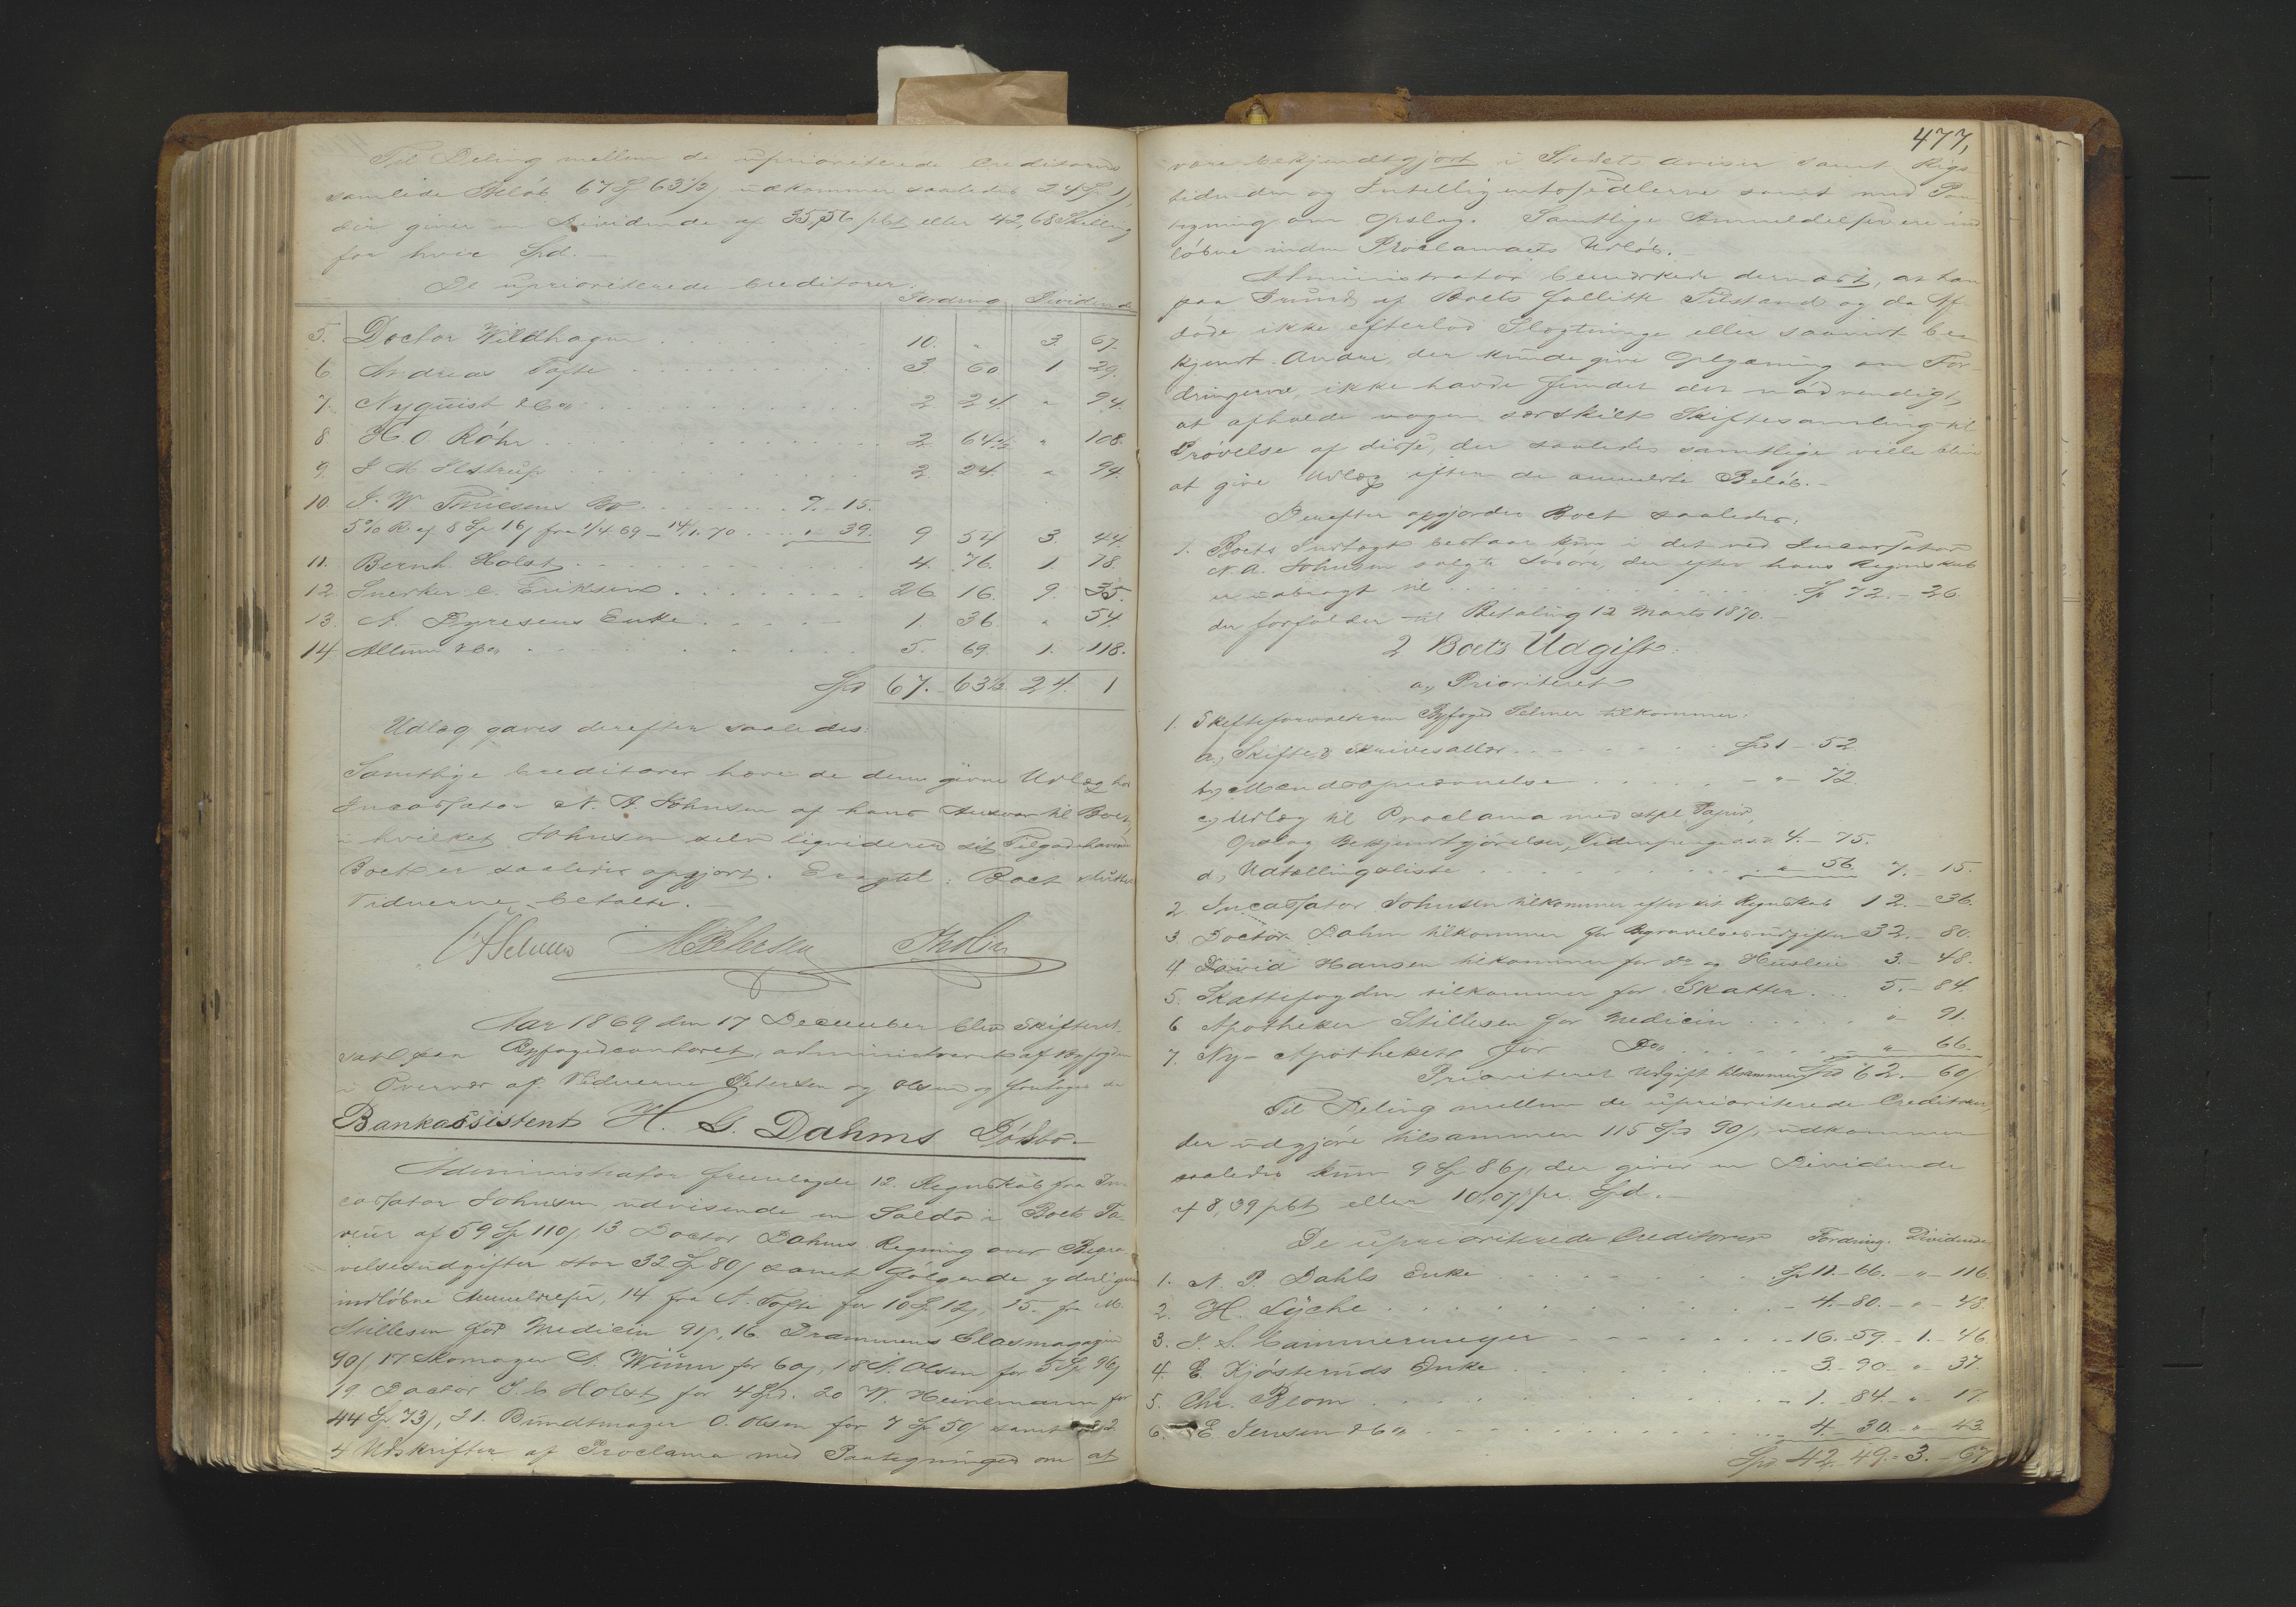 Til Deling mellem de uprioriterede Creditorers
samlede Beløb 67 Sp 63½ ß udkommer saaledes 24 Sp 1 ß,
der giver en Dividende af 35,56 pCt eller 42,68 Skilling
for hver Spd. –
De uprioriterede Creditorer. Fordring Dividende
5. Doctor Wildhagen 10. " 3. 67.
6. Andreas Tofte 3. 60 1 29.
7. Nyquist & Co 2 24. " 94.
8. H O Röhr 2. 64½ " 108.
9. J M Ilstrup 2. 24. " 94.
10. J. W Thuesens Bo 9. 15.
5% R. af 8 Sp 16 ß fra 1/4 69 – 14/1. 70 " 39. 9 54 3. 44.
11. Bernh. Holst 4. 76. 1. 78.
12. Snerker C. Eriksen 26 16. 9. 35.
13. A. Fyresens Enke 1. 36. " 54.
14. Allum & Co 5. 69. 1. 118.
Spd 67. 63½ 24. 1
Udlæg gaves derefter saaledes:
Samtlige Creditorer have de dem givne Udlæg hos
Incassator N. A. Johnsen af hans Ansvar til Boet,
i hvilket Johnsen selv liquiderer sit Tilgodehavende
Boet er saaledes opgjort. Eragtet: Boet sluttet
Vidnerne betalte. –
Selmer
Aar 1869 den 17 December blev Skifteret
sat paa Byfogedcontoret, administreret af Byfogden
i Overvær af Vidnerne Petersen og Olsen og foretoges da
Bankassistent H. G. Dahms Dödsbo. –
Administrator fremlagde 12. Regnskab fra In-
cassator Johnsen udvisende en Saldo i Boets Fa-
veur af 59 Sp 110 ß, 13 Doctor Dahms Regning over Begra-
velsesudgifter stor 32 Sp 80 ß samt følgende yderligere
indløbne Anmeldelser, 14 fra A. Tofte for 10 Sp 12 ß, 15. fra M.
Stillesen for Medicin 91 ß, 16. Drammens Glasmagazin
90 ß 17 Skomager S. Wünn for 60 ß, 18 A. Olsen for 5 Sp 96 ß
19 Doctor J. C Holst for 4 Spd. 20 W. Heinemann for
44 Sp 73 ß, 21. Bundtmager O. Olsen for 7 Sp 50 ß samt 22
4 Udskrifter af Proclama med Paategninger om at
477,
være bekjendtgjort i Stedets Aviser samt Rigs-
tidenden og Intelligentssedlerne samt med Paa-
tegning om Opslag. Samtlige Anmeldelser ere ind-
løbne inden Proclamaets Udløb. –
Administrator bemærkede dernæst, at han
paa Grund af Boets fallitte Tilstand og da Af-
døde ikke efterlod Slægtninge eller saavidt be-
kjendt Andre, der kunde give Oplysning om For-
dringerne, ikke havde fundet det nødvendigt,
at afholde nogen særskilt Skiftesamling til
Prøvelse af disse, der saaledes samtlige ville blive
at give Udlæg efter de anmeldte Beløb. –
Derefter opgjordes Boet saaledes:
1. Boets Indtægt bestaar kun i det ved Incassator
N. A. Johnsen solgte Løsøre, der efter hans Regnskab
er udbragt til Sp 72. – 26
der forfalder til Betaling 12 Marts 1870. –
2 Boets Udgift:
a, Prioriteret
1. Skifteforvalteren Byfoged Selmer tilkommer:
a, Skifte & Skrivesallær Spd 1 – 52
b, Mændsopnævnelse " – 72.
c, Udlæg til Proclama med stpl. Papir,
Opslag Bekjendtgjørelser, Vidnepenge o.s.v. 4. – 75.
d, Udtællingsliste " 56. 7. – 15.
2. Incassator Johnsen tilkommer efter sit Regnskab 12. – 36.
3 Doctor Dahm tilkommer for Begravelsesudgifter 32. – 80.
4 David Hansen tilkommer for Do og Husleie 3. – 48.
5. Skattefogden tilkommer for Skatter 5. – 84.
6 Apotheker Stillesen for Medicin " 91.
7. Ny-Apotheket for Do " 66.
Prioriteret Udgift tilsammen Spd 62. – 60 ß
Til Deling mellem de uprioriterede Creditorer,
der udgjøre tilsammen 115 Spd 90 ß, udkommer
saaledes kun 9 Sp 86 ß, der giver en Dividende
af 8,39 pCt eller 10,07 ß pr. Spd. –
De uprioriterede Creditorer Fordring. Dividende
1. N. P. Dahls Enke Sp 11. – 66. – " – 116
2. H. Lyche 4. – 80. – " – 48.
3. J. S. Cammermeyer 16. – 59. – 1. – 46
4. E. Kjøsteruds Enke 3. – 90. – " – 37.
5. Chr. Blom 1. – 84. – " – 17.
6. E. Jensen & Co 4. – 30. – " – 43.
Spd. 42. – 49. – 3. – 67